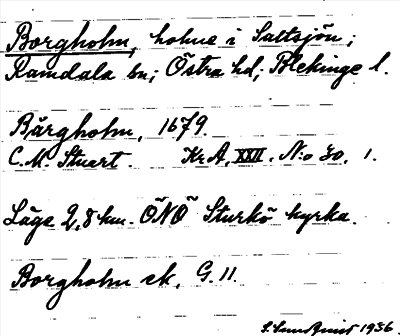 Borgholm, holme i Saltsjön;
Ramdala sn; Östra hd; Blekinge l.
Bårgholm, 1679.
C. M. Stuart. Kr A, XXII. N:o 30, 1.
Läge 2,8 km. ÖNÖ Sturkö kyrka.
Borgholm ek, G. 11.
1936.